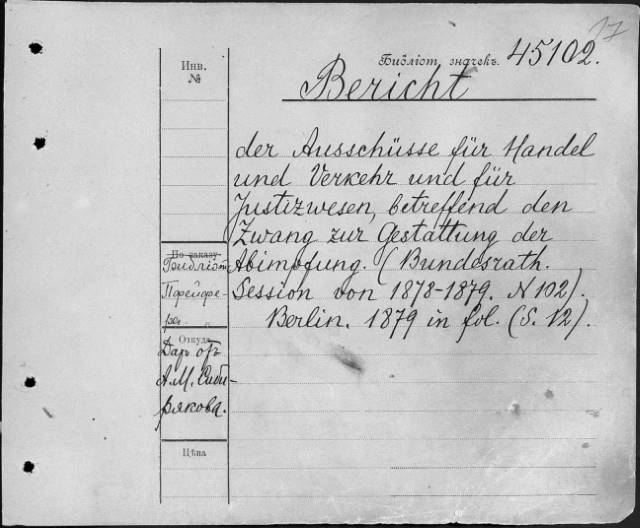 17
Библіот. значекъ. 45102.
Инв.
№
Bericht
der Ausschüsse für Handel
und Verkehr und für
Justizwesen, betreffend den
Zwang zur Gestattung der
Abimpfung. (Bundesrath.
Session von 1878-1879. N 102).
Berlin. 1879 in fol. (S. 12).
По заказу
Библіот.
Пфейфе-
ра
Откуда
Даръ отъ
А.М. Сиби-
рякова.
Цѣна